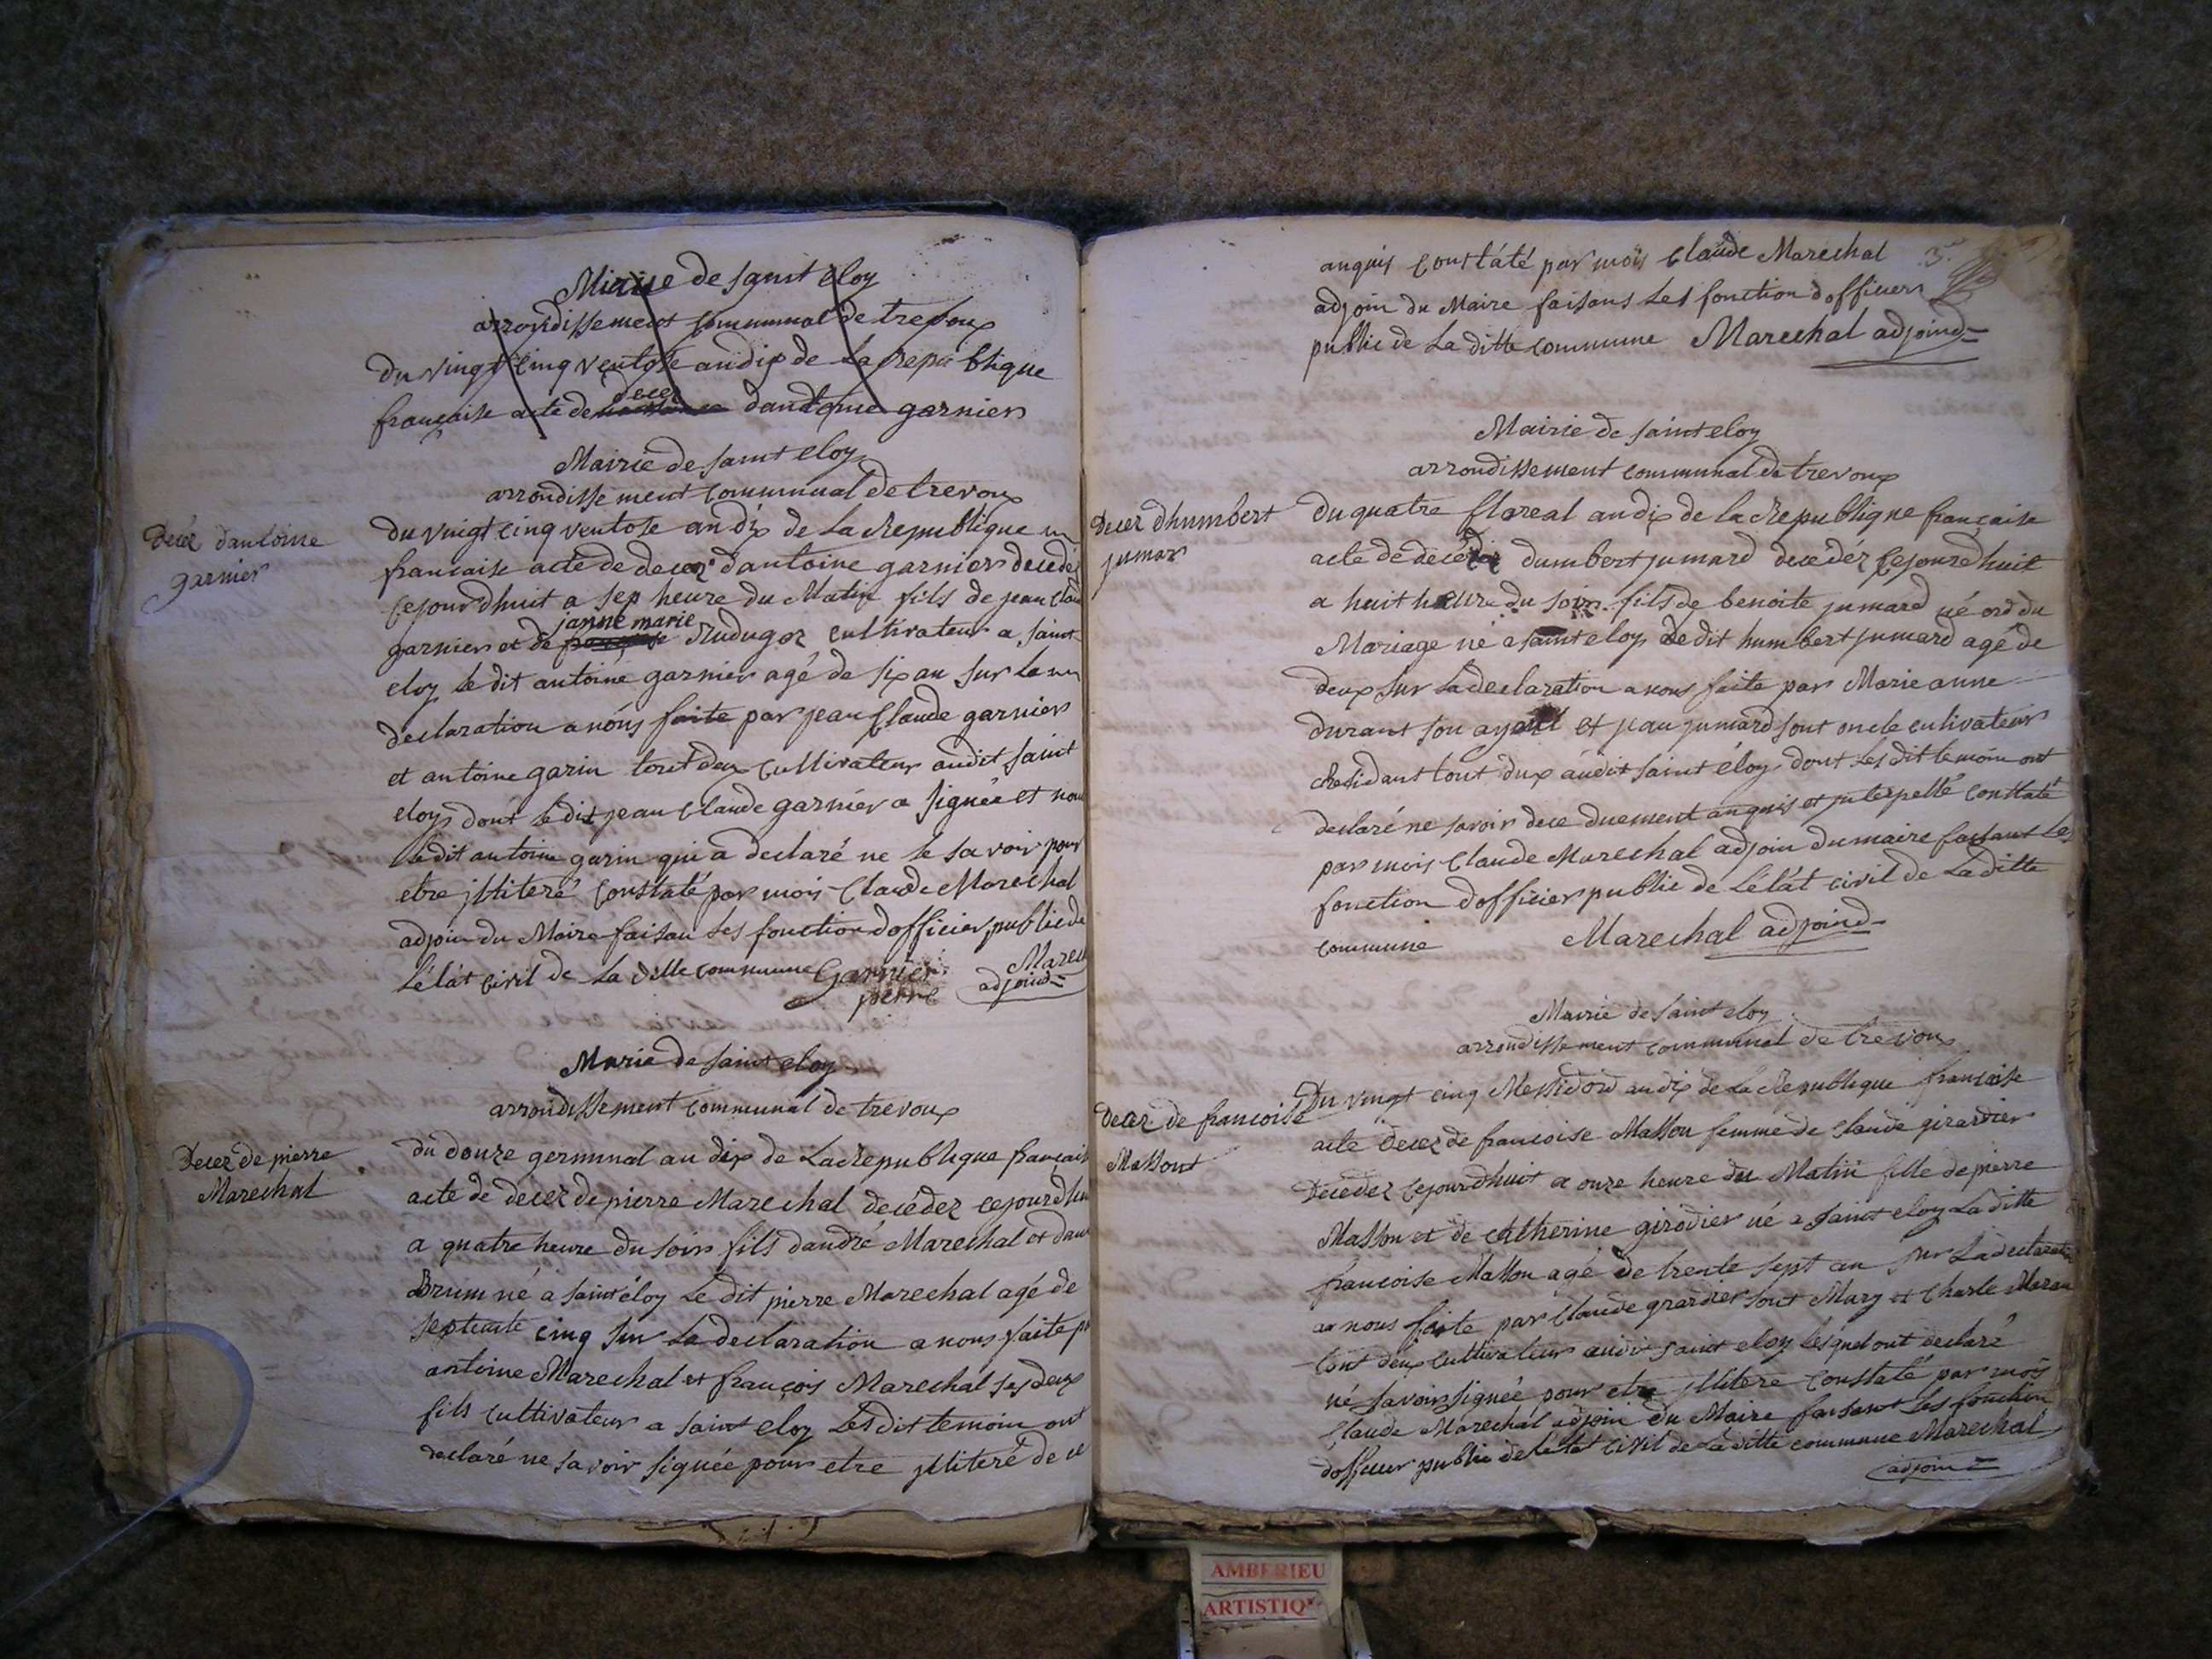 Mairie de saint eloy
arrondissement communal de trevoux
du vingt cinq ventose an dix de la republique
française acte de decez dantoine garnier
Mairie de saint eloy
arrondissement communal de trevoux
Decez dantoine
garnier
du vingt cinq ventose an dix de la Republique
francaise acte de decez dantoine garnier decedéz
cejourdhuit a sep heure du Matin fils de jean Clau
garnier et de janne marie cultivateur a saint
eloy le dit antoine garnier agé de six an sur la
declaration a nous faite par jean Claude garnier
et antoine garin tout deux cultivateur audit saint
eloy dont le dit jean Claude garnier a signée et non
le dit antoine garin qui a declaré ne le savoir pour
etre illiteré constaté par mois Claude Marechal
adjoin du Maire faisan les fonction dofficier public de
l'état civil de la ditte commune Garnier Marech
perre adjoind
Marie de saint eloy
arrondissement communal de trevoux
Decez de pierre
Marechal
du douze germinal an dix de la Republique francais
acte de decez de pierre Marechal decédez cejourdhui
a quatre heure du soir fils dandré Marechal et
Brun né a saint éloy Le dit pierre Marechal agé de
septente cinq sur la declaration a nous faite p
antoine Marechal et françois Marechal ses deux
fils cultivateur a saint eloy Les dit temoin ont
declaré ne savoir signée pour etre illiteré de ce
3.
anquis constaté par mois Claude Marechal
adjoin du Maire faisans les fonction dofficier
public de la ditte commune Marechal adjoind
Mairie de saint eloy
arrondissement communal de trevoux
Decez dhumbert
jumar
du quatre floreal an dix de la Republique francaise
acte de decéz dumbert jumard decedéz cejourdhuit
a huit heure du soir fils de benoite jumard né ord du
Mariage né a saint eloy Le dit humbert jumard agé de
deux sur la declaration a nous faite par Marie anne
durant son ayeul et jean jumard sont oncle cultivateur
Residant tout dux audit saint éloy dont Les dit temoin ont
declaré ne savoir dece duement anquis et interpellé constaté
par mois Claude Marechal adjoin du maire faisant les
fonction dofficier public de l'état civil de La ditte
commune Marechal adjoind
Mairie de saint eloy
arrondissement communal de trevoux
Decez de francoise
Massont
Du vingt cinq Messidord an dix de la Republique francoise
acte decez de francoise Masson femme de claude girardier
Decedez cejourdhuit a onze heure du Matin fille de pierre
Masson et de catherine girodier né a saint eloy La ditte
francoise Masson agé de trente sept an sur la declaration
a nous faite par Claude grardier sont Mary et Charle
tout deux cultivateur audit saint eloy lesquel ont declaré
né savoir signée pour etre illitere constaté par mois
Claude Marechal adjoin du Maire faisant les fonction
dofficier public de létat civil de La ditte commune Marechal
adjoin
AMBERIEU
ARTISTIQ